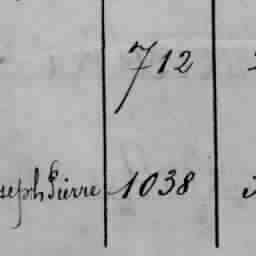 712
seph Pierre 1038